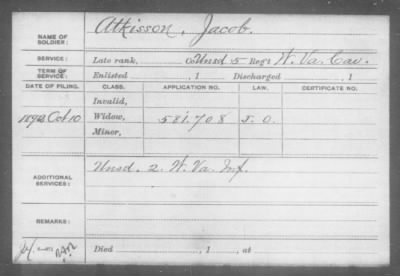 NAME OF SOLDIER: Atkisson, Jacob.
SERVICE: Late rank, Co Unsd 5 Reg't W. Va. Cav.
TERM OF SERVICE: Enlisted , 1 Discharged , 1
DATE OF FILING. CLASS. APPLICATION NO. LAW. CERTIFICATE NO.
Invalid,
1892 Oct 10 Widow, 581.708 J. O.
Minor,
ADDITIONAL SERVICES: Unsd. 2. W. Va. Inf.
REMARKS:
Died , 1 , at